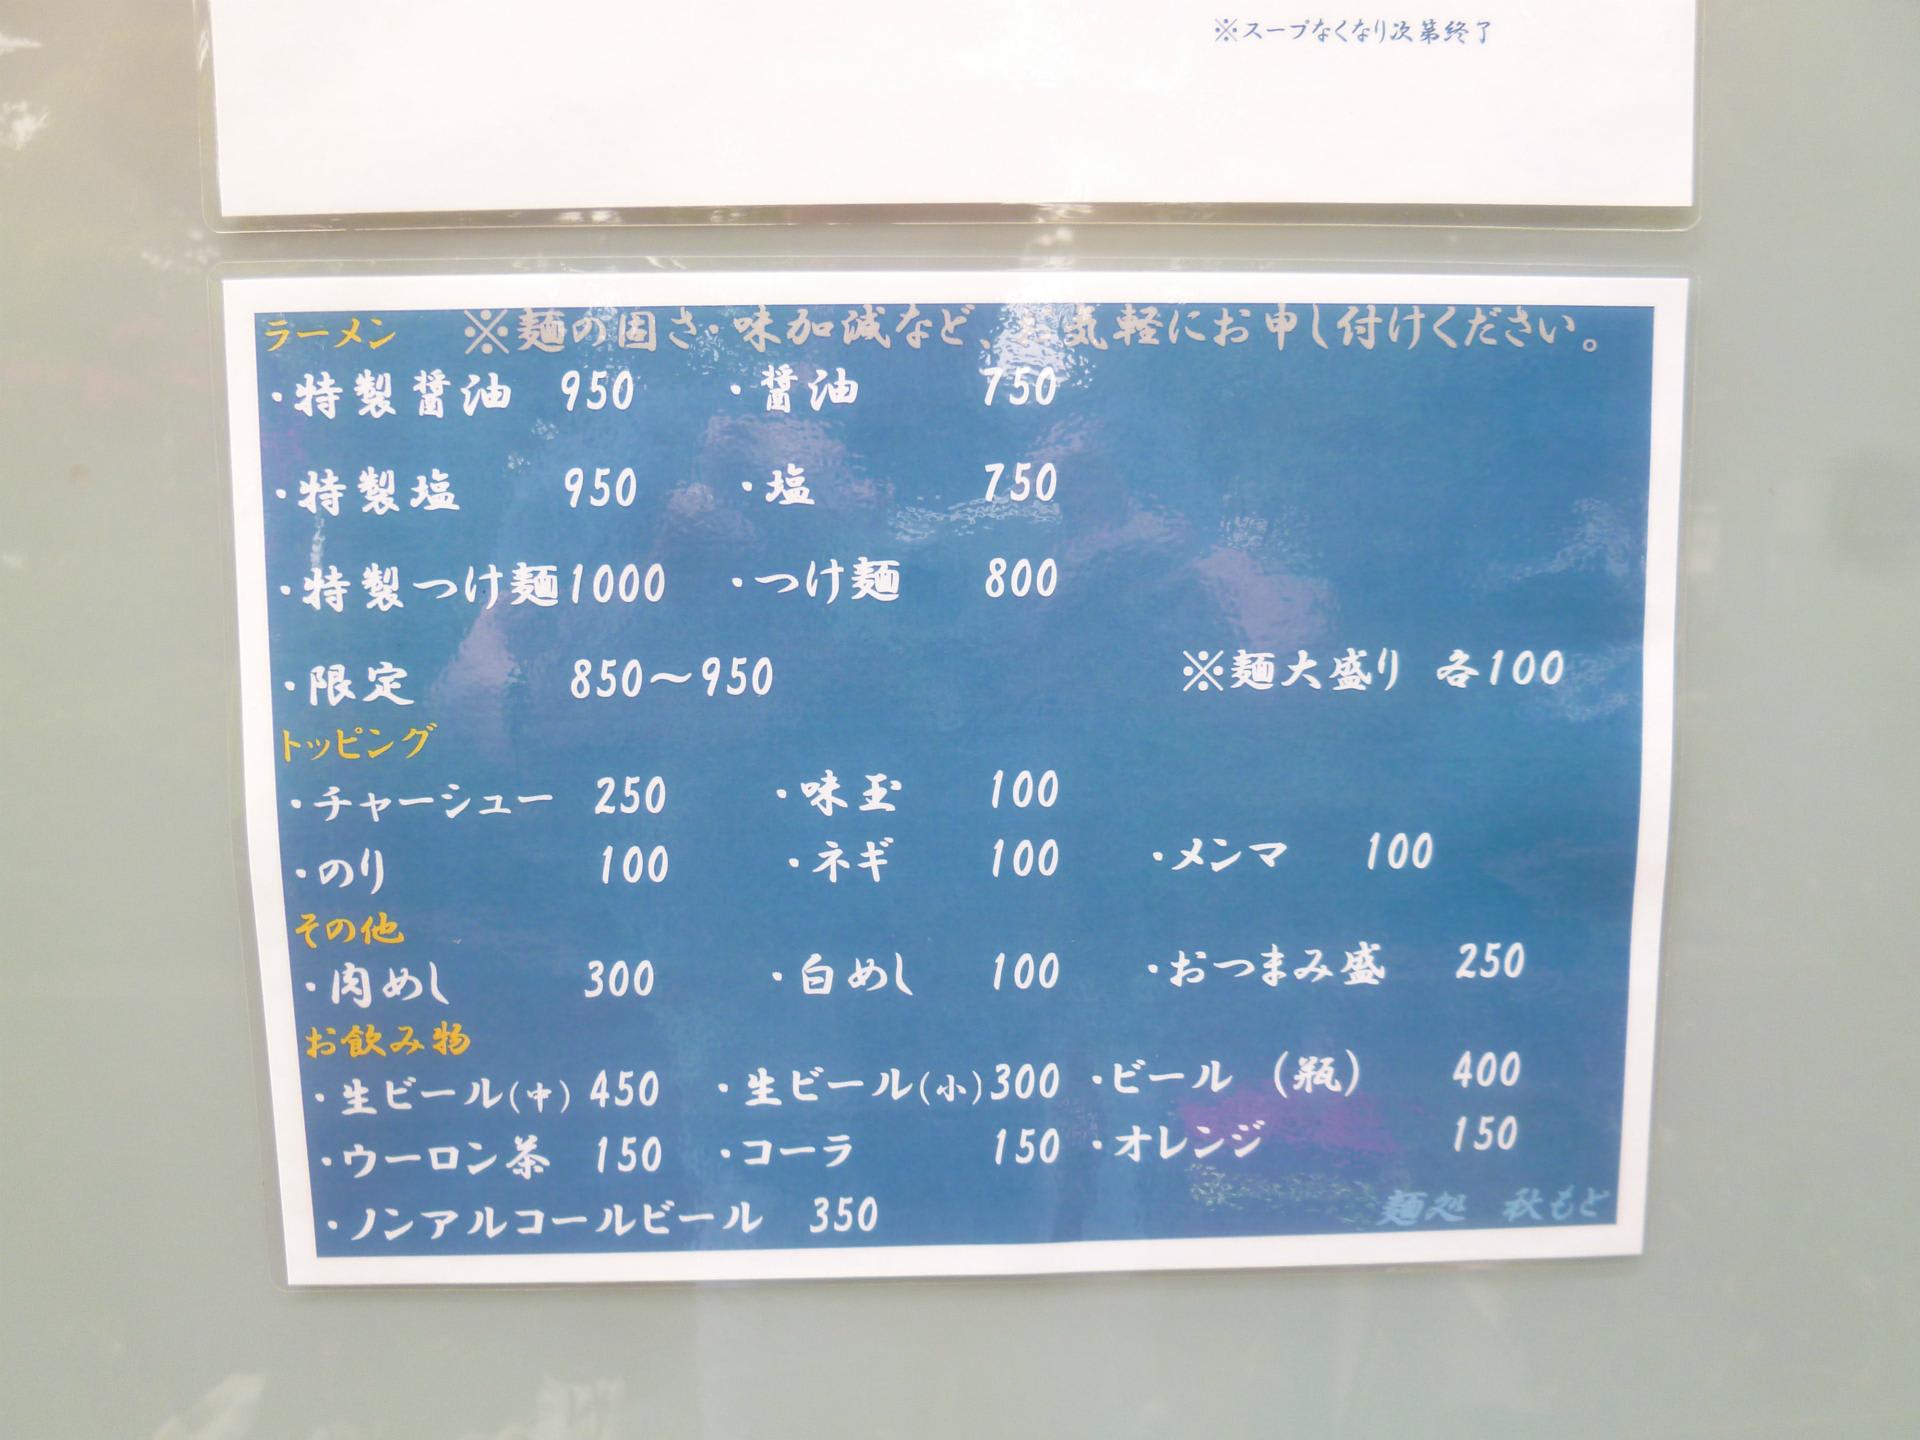 ※スープなくなり次第終了
ラーメン ※麺の固さ・味加減など、お気軽にお申し付けください。
・特製醤油 950 ・醤油 750
・特製塩 950 ・塩 750
・特製つけ麺1000 ・つけ麺 800
・限定 850～950 ※麺大盛り 各100
トッピング
・チャーシュー 250 ・味玉 100
・のり 100 ・ネギ 100 ・メンマ 100
その他
・肉めし 300 ・白めし 100 ・おつまみ盛 250
お飲み物
・生ビール(中) 450 ・生ビール(小)300 ・ビール (瓶) 400
・ウーロン茶 150 ・コーラ 150 ・オレンジ 150
・ノンアルコールビール 350
麺処 秋もと